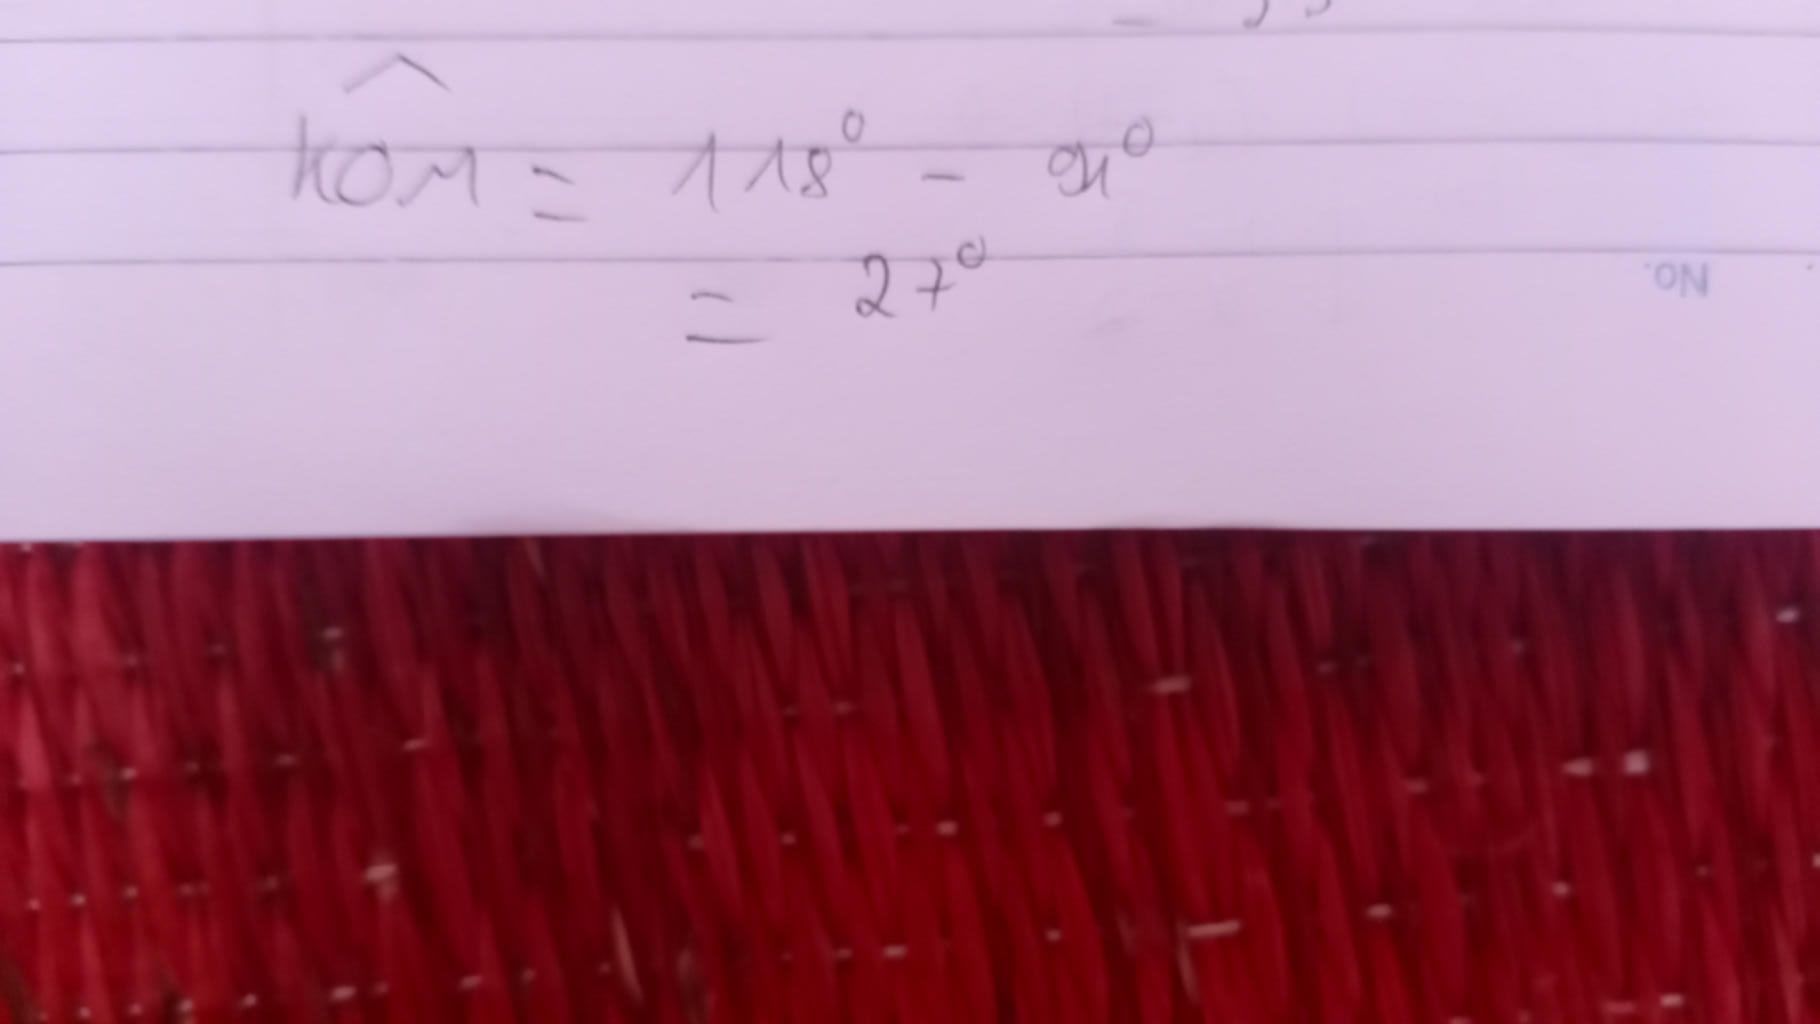 KOM = 118° - 91°
= 27°
No.